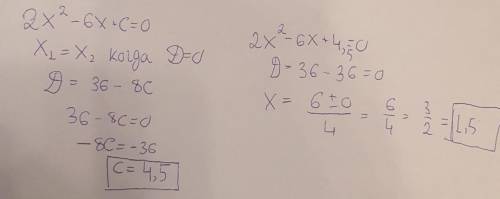 2x² - 6x + c = 0
x₁ = x₂ когда D=0
D = 36 - 8c
36 - 8c = 0
-8c = -36
c = 4,5
2x² - 6x + 4,5 = 0
D = 36 - 36 = 0
x = (6 ± 0)/4 = 6/4 = 3/2 = 1,5